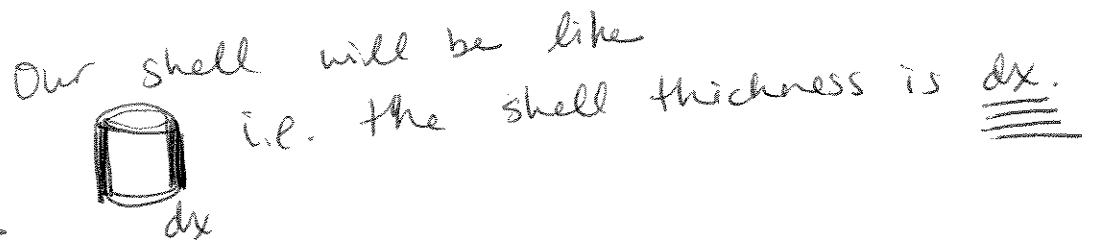 Our shell will be like
i.e. the shell thickness is dx.
dx